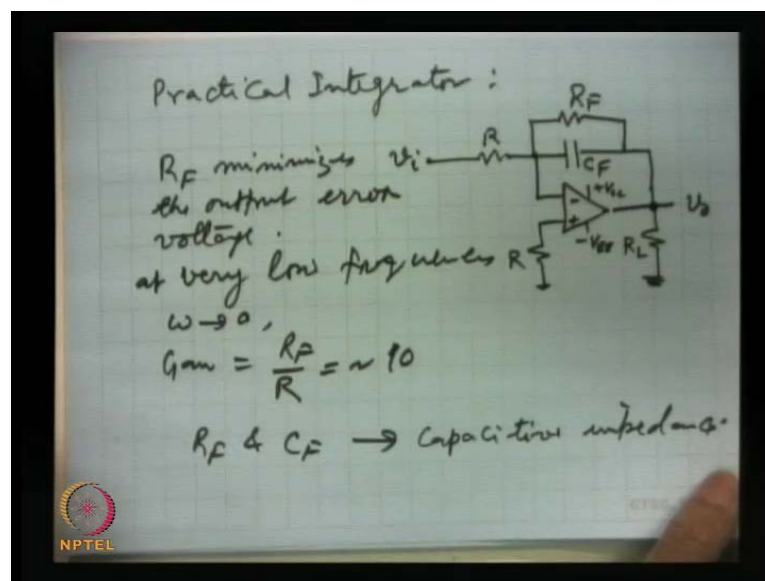 Practical Integrator :
R_F minimizes
the output error
voltage .
at very low frequencies
ω → 0 ,
Gain = R_F / R = ~ 10
R_F & C_F → Capacitive impedance.
v_i
R
R_F
C_F
-
+
+V_CC
-V_EE
R
R_L
v_o
NPTEL